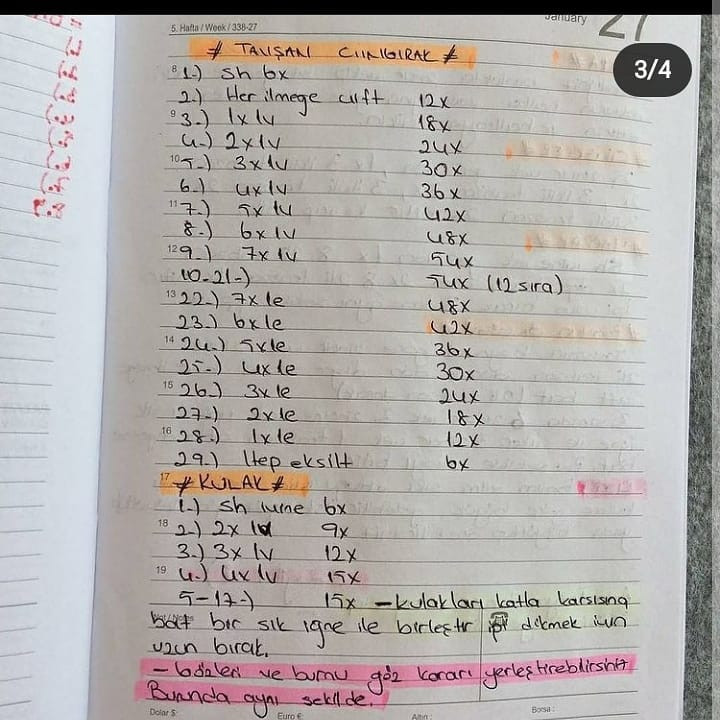 5. Hafta / Week / 338-27
January
27
3/4
# TAVŞAN CIINGIRAK #
8 1.) sh 6x
2.) Her ilmeğe çift 12x
9 3.) 1x1v 18x
4.) 2x1v 24x
10 5.) 3x1v 30x
6.) 4x1v 36x
11 7.) 5x1v 42x
8.) 6x1v 48x
12 9.) 7x1v 54x
10-21-) 54x (12 sıra)
13 22.) 7x1e 48x
23.) 6x1e 42x
14 24.) 5x1e 36x
25.) 4x1e 30x
15 26.) 3x1e 24x
27.) 2x1e 18x
16 28.) 1x1e 12x
29.) Hep eksilt 6x
17 # KULAK #
1.) sh içine 6x
18 2.) 2x1v 9x
3.) 3x1v 12x
19 4.) 4x1v 15x
5-17-) 15x - kulakları katla karşısına
bir sık iğne ile birleştir ipi dikmek için
uzun bırak.
- Gözleri ve burnu göz kararı yerleştirebilirsiniz
Burunda aynı şekilde.
Dolar $:
Euro €:
Altın :
Borsa :